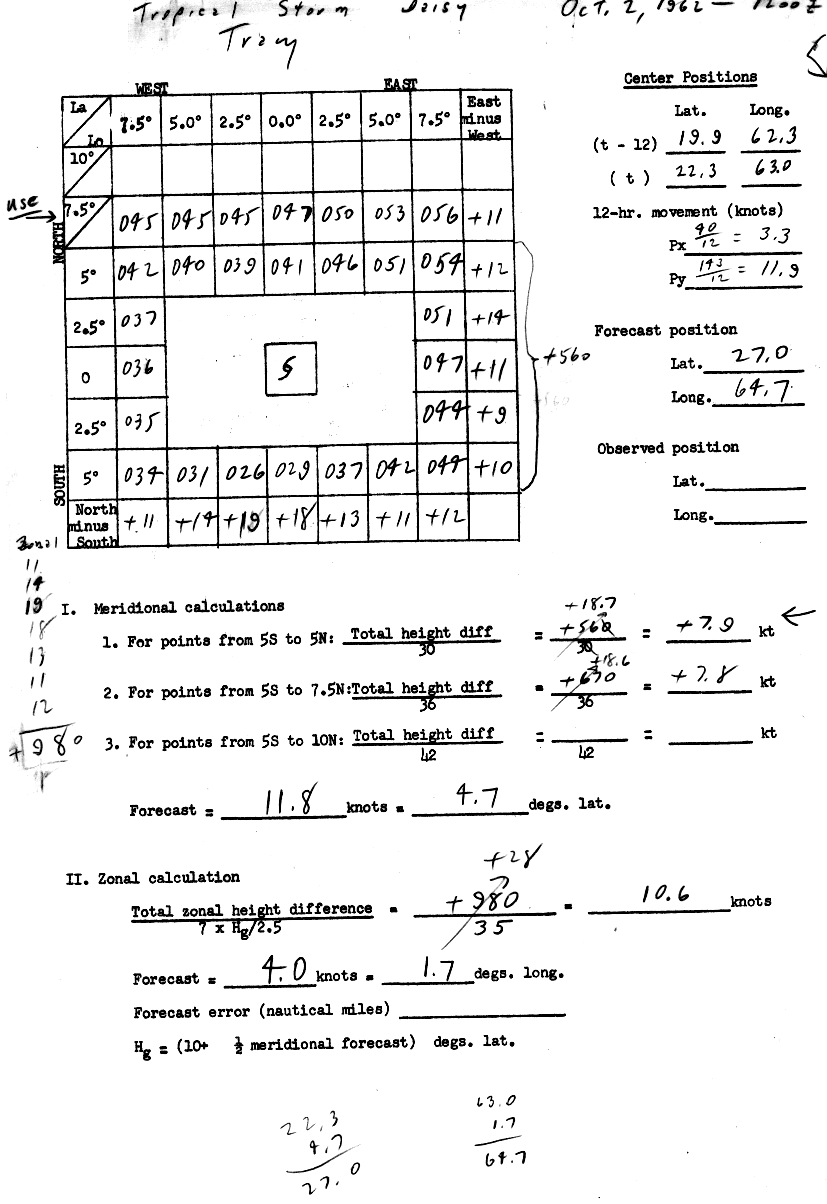 Tropical Storm Daisy Oct. 2, 1962 — 1200Z
WEST EAST
La Lo 7.5° 5.0° 2.5° 0.0° 2.5° 5.0° 7.5° East minus West
10°
use → 7.5° 045 045 045 047 050 053 056 +11
NORTH
5° 042 040 039 041 046 051 054 +12
2.5° 037 051 +14
0 036 047 +11
2.5° 035 044 +9
+560
SOUTH
5° 034 031 026 029 037 042 044 +10
North minus South +11 +14 +19 +18 +13 +11 +12
Center Positions
Lat. Long.
(t - 12) 19.9 62.3
( t ) 22.3 63.0
12-hr. movement (knots)
Px 40/12 = 3.3
Py 143/12 = 11.9
Forecast position
Lat. 27.0
Long. 64.7
Observed position
Lat.
Long.
Zonal
11
14
19
18
13
11
12
+980
I. Meridional calculations
+18.7
1. For points from 5S to 5N: Total height diff / 30 = +560 / 30 = +7.9 kt
+18.6
2. For points from 5S to 7.5N: Total height diff / 36 = +670 / 36 = +7.8 kt
3. For points from 5S to 10N: Total height diff / 42 = / 42 = kt
Forecast = 11.8 knots = 4.7 degs. lat.
II. Zonal calculation
+28
Total zonal height difference / 7 x Hg/2.5 = +980 / 35 = 10.6 knots
Forecast = 4.0 knots = 1.7 degs. long.
Forecast error (nautical miles)
Hg = (10+ ½ meridional forecast) degs. lat.
22.3
4.7
27.0
63.0
1.7
64.7